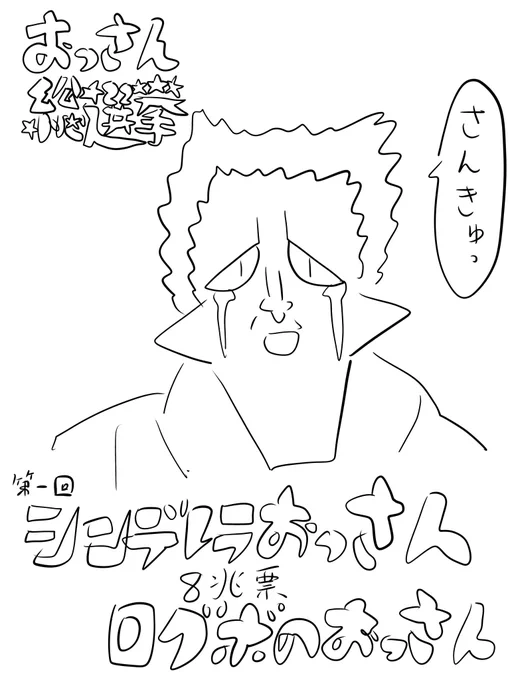 おっさん
総選挙
さんきゅっ
第一回
シンデレラおっさん
8兆票
ログボのおっさん